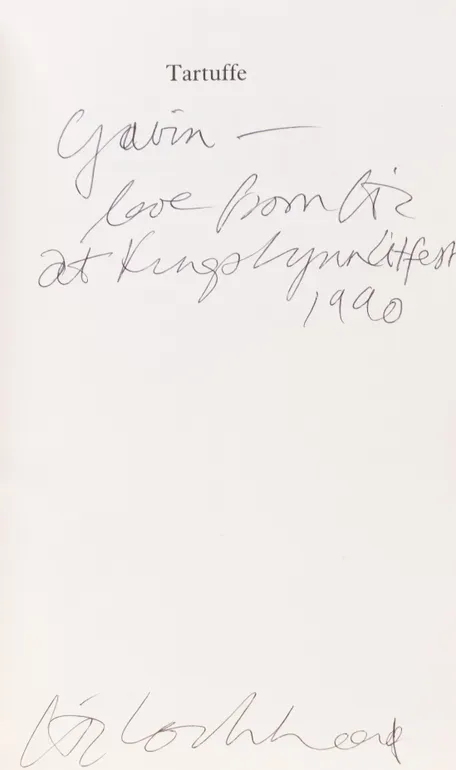 Tartuffe
Gavin —
love from Liz
at Kings Lynn Litfest
1990
Liz Lochhead